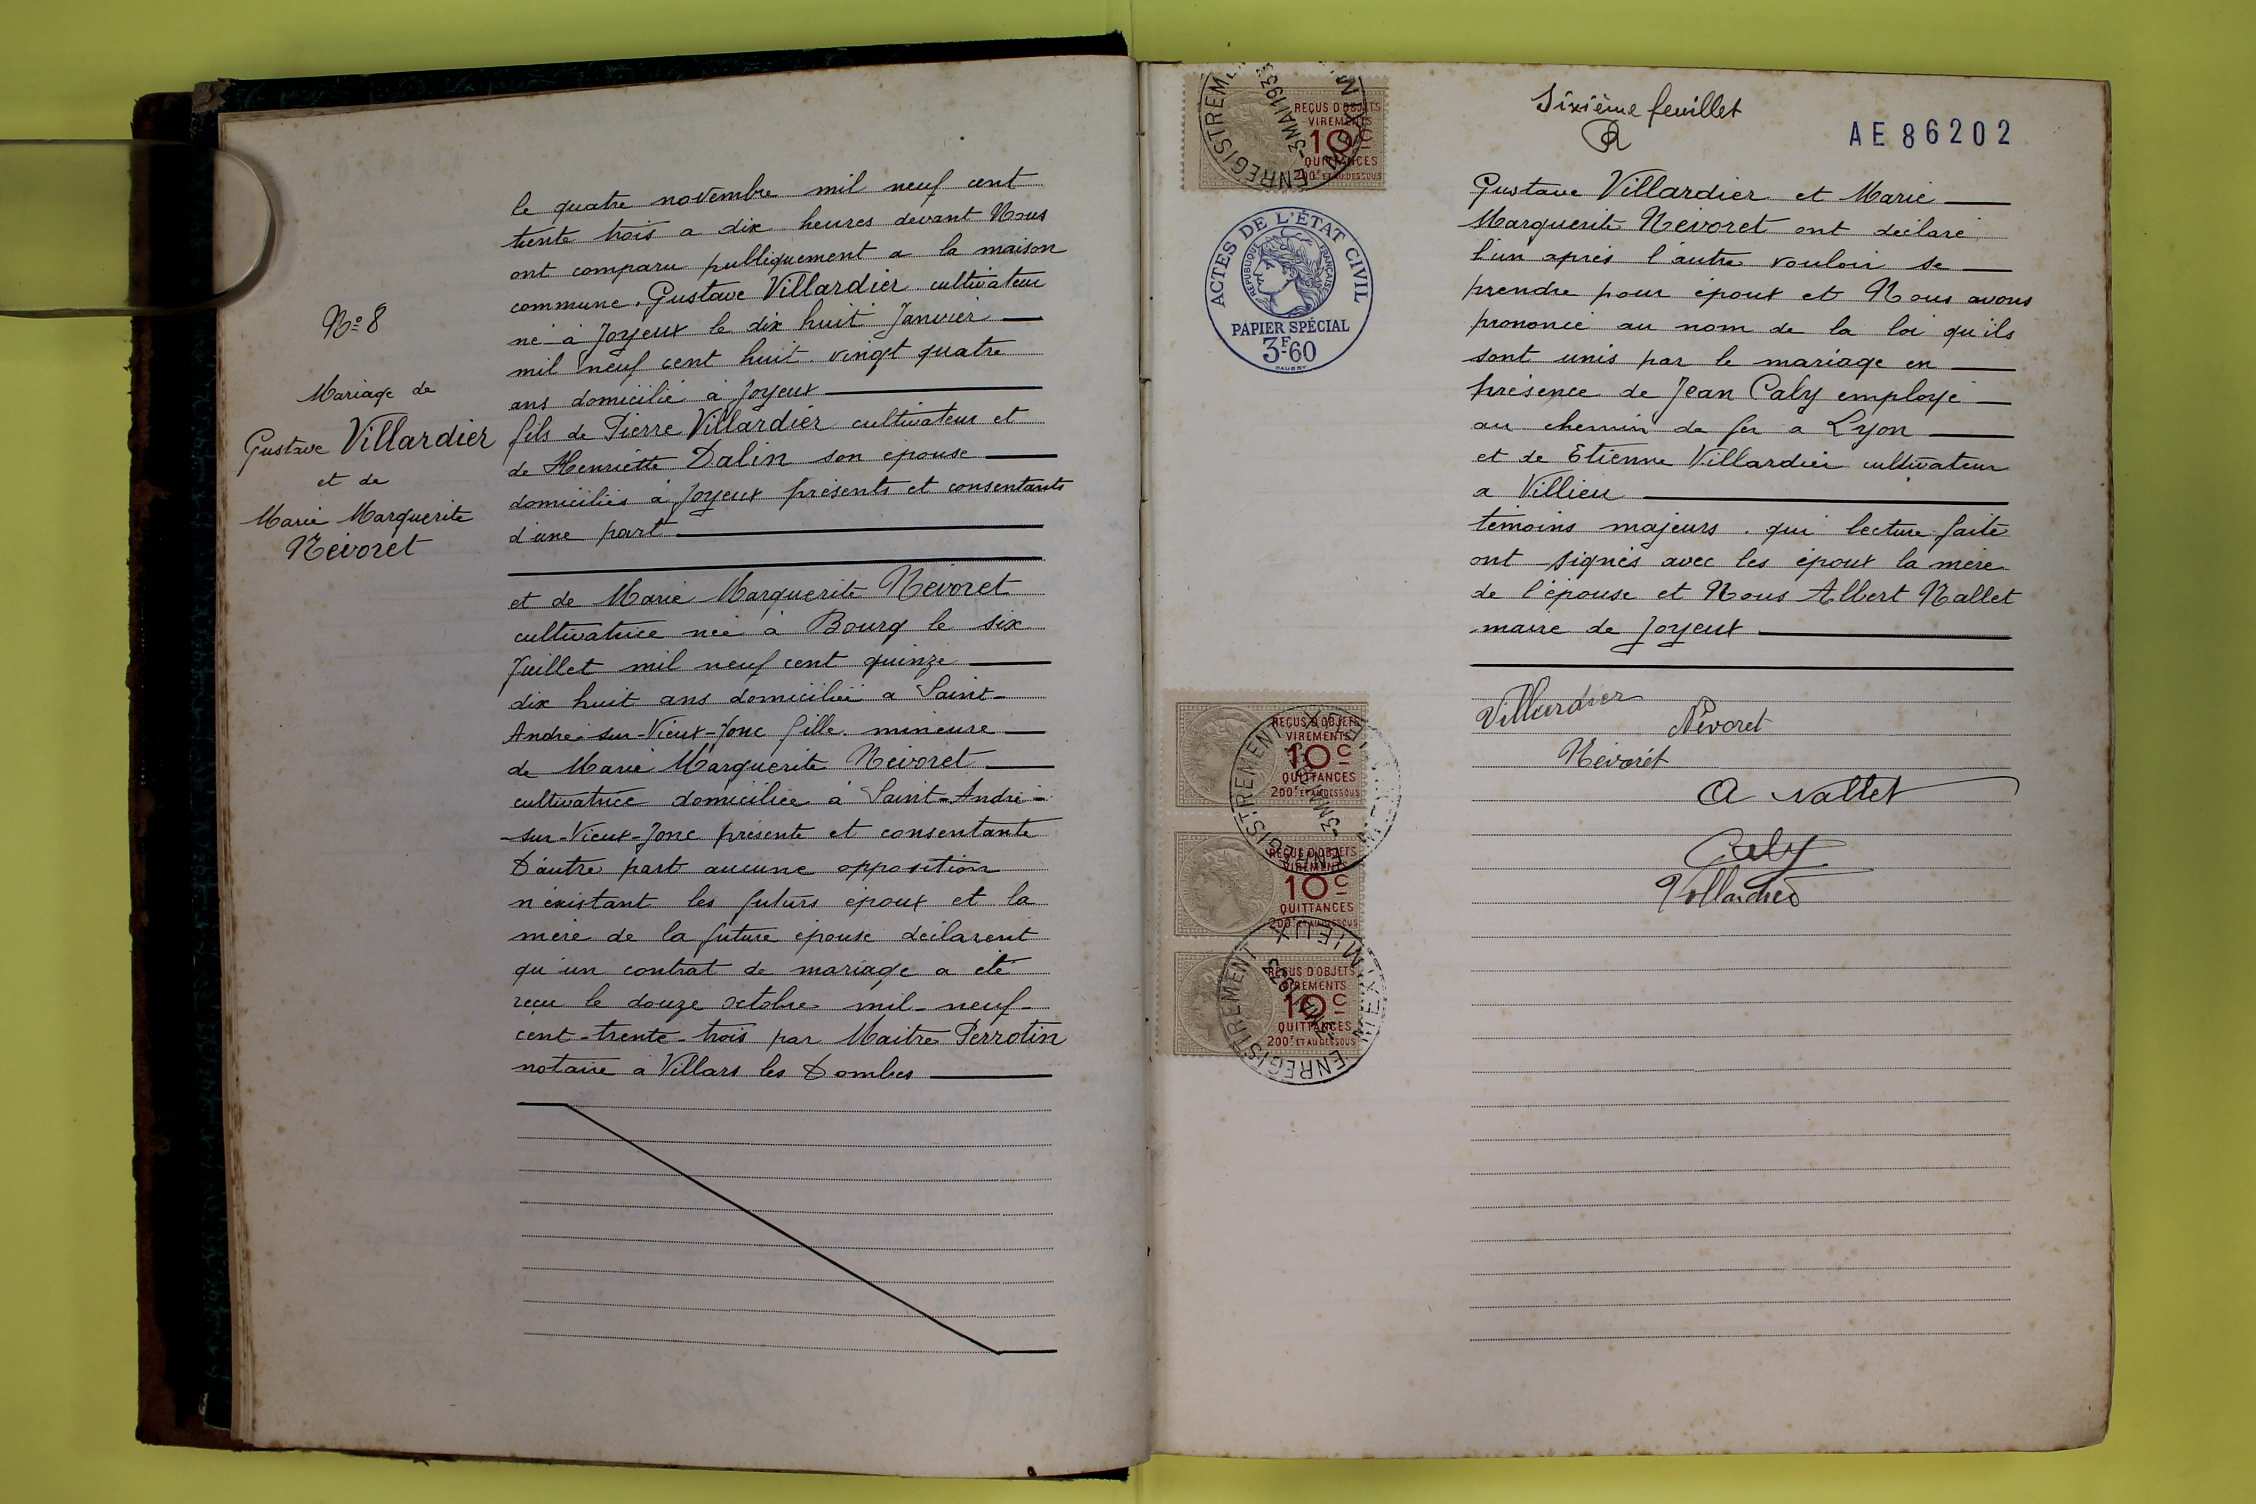 N° 8
Mariage de
Gustave Villardier
et de
Marie Marguerite
Névoret
le quatre novembre mil neuf cent
trente trois a dix heures devant Nous
ont comparu publiquement a la maison
commune. Gustave Villardier cultivateur
né à Joyeux le dix huit Janvier
mil neuf cent huit vingt quatre
ans domicilié à Joyeux
fils de Pierre Villardier cultivateur et
de Henriette Dalin son épouse
domiciliés à Joyeux présents et consentants
d'une part
et de Marie Marguerite Névoret
cultivatrice née à Bourg le six
Juillet mil neuf cent quinze
dix huit ans domiciliée a Saint-
André-sur-Vieux-Jonc fille mineure
de Marie Marguerite Névoret
cultivatrice domiciliée à Saint-André-
sur-Vieux-Jonc présente et consentante
D'autre part aucune opposition
n'existant les futurs époux et la
mère de la future épouse déclarent
qu'un contrat de mariage a été
reçu le douze octobre mil-neuf-
cent-trente-trois par Maitre Perrotin
notaire à Villars les Dombes
Sixième feuillet
AE 86202
Gustave Villardier et Marie
Marguerite Névoret ont déclaré
l'un après l'autre vouloir se
prendre pour époux et Nous avons
prononcé au nom de la loi qu'ils
sont unis par le mariage en
présence de Jean Caly employé
au chemin de fer a Lyon
et de Etienne Villardier cultivateur
a Villieu
témoins majeurs. qui lecture faite
ont signés avec les époux la mère
de l'épouse et Nous Albert Nallet
maire de Joyeux
Villardier
Névoret
Névorét
A Nallet
Caly
Villardier
REÇUS D'OBJETS
VIREMENTS
10c
QUITTANCES
200F ET AU DESSOUS
ENREGISTREMENT
-3 MAI 193
ACTES DE L'ÉTAT CIVIL
RÉPUBLIQUE FRANÇAISE
PAPIER SPÉCIAL
3F60
DAUSSY
REÇUS D'OBJETS
VIREMENTS
10c
QUITTANCES
200F ET AU DESSOUS
ENREGISTREMENT
-3 MA
REÇUS D'OBJETS
VIREMENTS
10c
QUITTANCES
200F ET AU DESSOUS
REÇUS D'OBJETS
VIREMENTS
10c
QUITTANCES
200F ET AU DESSOUS
ENREGISTREMENT
MEXIMIEUX